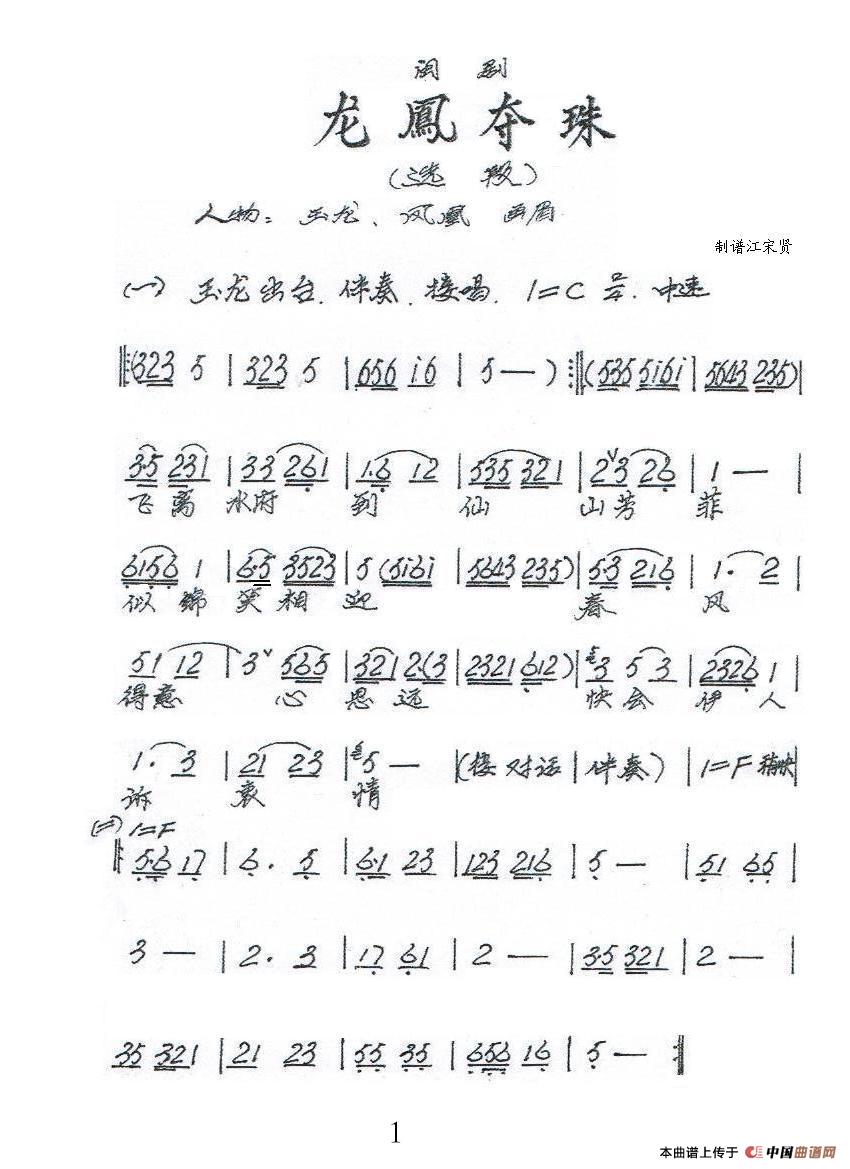 闽剧
龙鳳夺珠
(选段)
人物：玉龙、凤凰 画眉
制谱江宋贤
(一) 玉龙出台.伴奏.接唱. 1=C 2/4. 中速
‖:(323 5 | 323 5 | 656 i6 | 5 — ) :‖ (535 5i6i | 5643 235) |
3·5 231 | 33 261 | 1·6 12 | 535 321 | 2ˇ3 26 | 1 — |
飞离 水府 到 仙 山芳 菲
6156 1 | 6·5 3523 | 5 (5i6i | 5643 235) | 5·3 216 | 1. 2 |
似锦 笑相 迎 春 风
51 12 | 3ˇ 565 | 321 2·(3 | 2321 612) | 3 5 3 | 2326 1 |
得意 心 思 远 快会 伊人
1. 3 | 21 23 | 5 — (接对话 | 伴奏) | 1=F 稍快 |
诉 衷 情
(二) 1=F
‖: 5·6 17 | 6. 5 | 6·1 23 | 123 216 | 5 — | 51 65 |
3 — | 2. 3 | 17 61 | 2 — | 3·5 321 | 2 — |
35 321 | 21 23 | 55 35 | 656 16 | 5 — :‖
1
本曲谱上传于 中国曲谱网